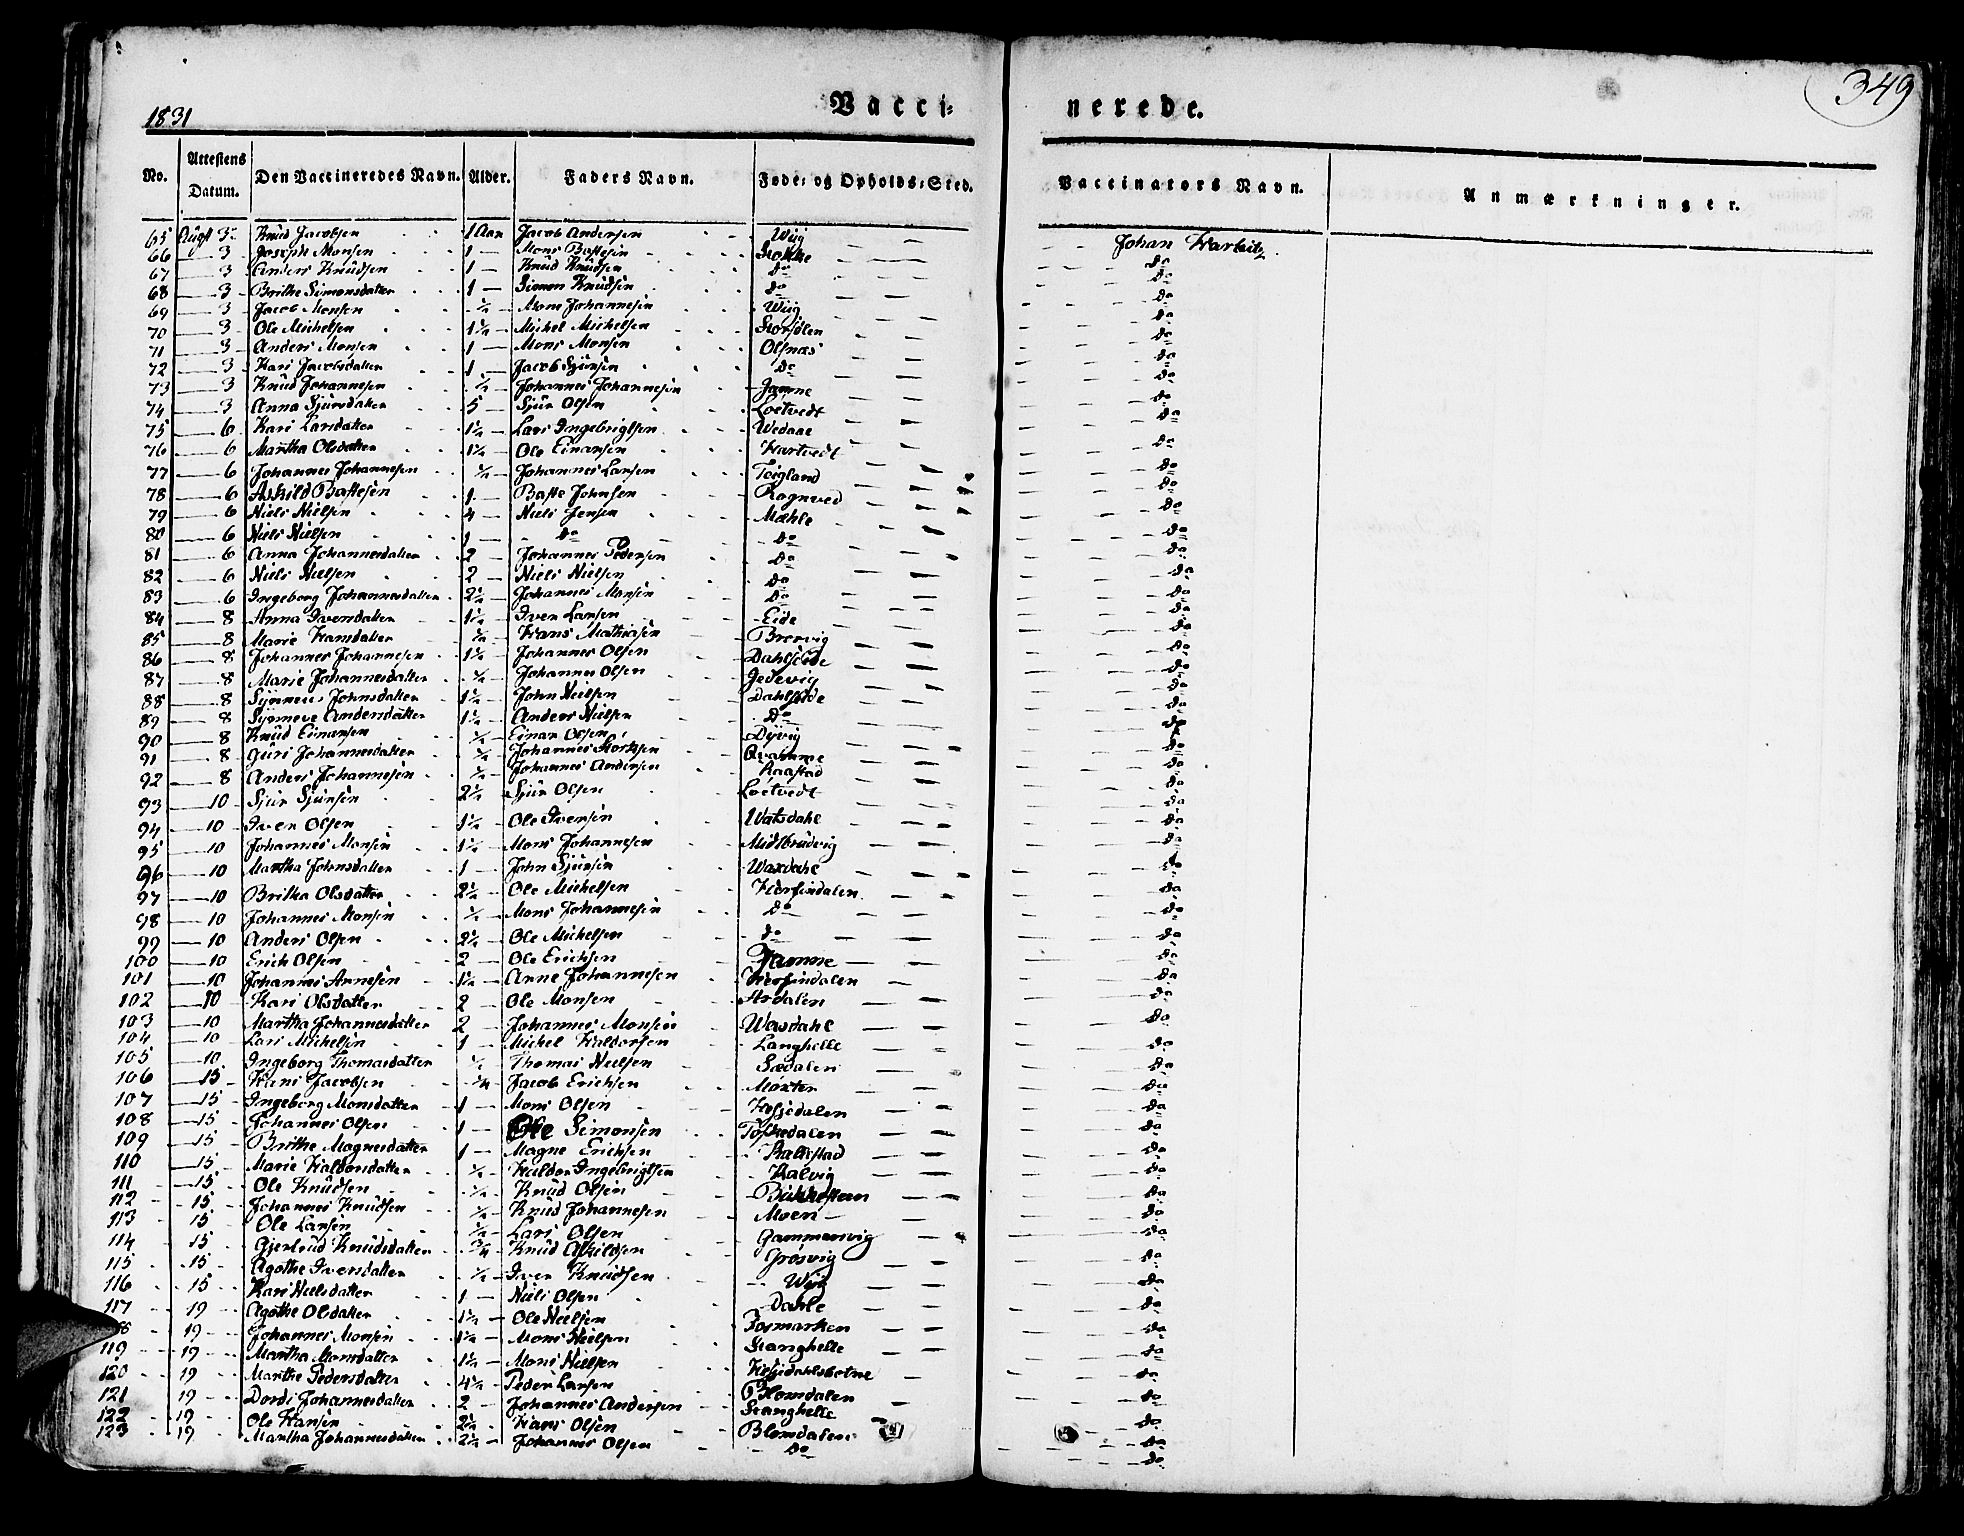 349
1831 Vacci- nerede.
No. Attestens Datum. Den Vaccineredes Navn. Alder. Faders Navn. Føde- og Opholds-Sted. Vaccinators Navn. Anmærkninger.
65 Augt 3 Knud Jacobsen 1 Aar Jacob Andersen Wiig Johan
66 3 Joseph Monsen 1 Mons Bastesen do
67 3 Anders Knudsen 1 Knud Knudsen do do
68 3 Brithe Simonsdatter 1 Simon Knudsen do do
69 3 Jacob Monsen ½ Mons Johannesen Wiig do
70 3 Ole Michelsen 1½ Michel Michelsen do
71 3 Anders Monsen 1 Mons Monsen Olsnæs do
72 3 Kari Jacobsdatter 1 Jacob Sjursen do do
73 3 Knud Johannesen ½ Johannes Johannesen do
74 3 Anna Sjursdatter 5 Sjur Olsen Loetvedt do
75 6 Kari Larsdatter 1½ Lars Ingebrigtsen Wedaae do
76 6 Martha Olsdatter 1½ Ole Einarsen Hartvedt do
77 6 Johannes Johannesen ½ Johannes Larsen Teigland do
78 6 Askild Bastesen 1 Baste Johnsen Rognved do
79 6 Niels Nielsen 4 Niels Jensen Mæhle do
80 6 Niels Nielsen 1 do do do
81 6 Anna Johannesdatter 2 Johannes Pedersen do do
82 6 Niels Nielsen 2 Niels Nielsen do do
83 6 Ingeborg Johannesdatter 2½ Johannes Monsen do do
84 8 Anna Iversdatter 1½ Iver Larsen Eide do
85 8 Marie Hansdatter ½ Hans Mathiasen Brørvig do
86 8 Johannes Johannesen 1½ Johannes Olsen Dahlseide do
87 8 Marie Johannesdatter ½ Johannes Olsen Jedevig do
88 8 Synneve Johnsdatter 1½ John Nielsen Dahlseide do
89 8 Synneve Andersdatter 1½ Anders Nielsen do do
90 8 Knud Einarsen ½ Einar Olsen Dyvig do
91 8 Guri Johannesdatter ½ Johannes Qvamme do
92 8 Anders Johannesen ½ Johannes Andersen Raastad do
93 10 Sjur Sjursen 2½ Sjur Olsen Loetvedt do
94 10 Iver Olsen 1½ Ole Iversen do
95 10 Johannes Monsen 1½ Mons Johannesen do
96 10 Martha Johnsdatter 1 John Sjursen Waxdahl do
97 10 Britha Olsdatter 2½ Ole Michelsen Herfindalen do
98 10 Johannes Monsen ½ Mons Johannesen do do
99 10 Anders Olsen 2½ Ole Michelsen do do
100 10 Erich Olsen 2 Ole Erichsen do
101 10 Johannes Annesen 1½ Anne Johannesen Herfindalen do
102 10 Kari Olsdatter 2 Ole Monsen Ardalen do
103 10 Martha Johannesdatter 2 Johannes Monsen do
104 10 Lars Michelsen 1 Michel Haldorsen Langhelle do
105 10 Ingeborg Thomasdatter ½ Thomas Nielsen Sædalen do
106 15 Hans Jacobsen ¼ Jacob Erichsen do
107 15 Ingeborg Monsdatter 1 Mons Olsen do
108 15 Johannes Olsen 1 Ole Simonsen Tøssedalen do
109 15 Brithe Magnesdatter 1 Magne Erichsen do
110 15 Marie Haldorsdatter ½ Haldor Ingebrigtsen Kalvig do
111 15 Ole Knudsen ½ Knud Olsen do
112 15 Johannes Knudsen ½ Knud Johannesen Moen do
113 15 Ole Larsen ½ Lars Olsen Gammersvig do
114 15 Gjertrud Knudsdatter ¾ Knud Askildsen Grøsvig do
115 15 Agothe Iversdatter ½ Iver Knudsen Wiig do
116 15 Kari Nielsdatter 1 Niels Olsen Dahle do
117 19 Agothe Olsdatter 1½ Ole Nielsen Fosmarken do
118 19 Johannes Monsen 1½ Mons Nielsen Stanghelle do
119 19 Martha Monsdatter 1½ Mons Nielsen do
120 19 Marthe Pedersdatter 4½ Peder Larsen Blomdalen do
121 19 Dordi Johannesdatter 2 Johannes Andersen Stanghelle
122 19 Ole Hansen 2½ Hans Olsen Blomdalen do
123 19 Martha Johannesdatter 2½ Johannes Olsen do do